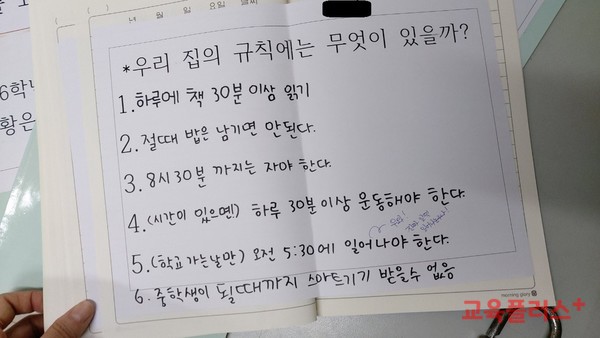 년 월 일 요일 날씨
*우리 집의 규칙에는 무엇이 있을까?
1. 하루에 책 30분 이상 읽기
2. 절때 밥은 남기면 안된다.
3. 8시 30분 까지는 자야 한다.
4. (시간이 있으면!) 하루 30분이상 운동해야 한다.
5. (학교 가는날만) 오전 5:30에 일어나야 한다.
6. 중학생이 될때까지 스마트기기 받을수 없음
morning glory
교육플러스+
6학년
황은